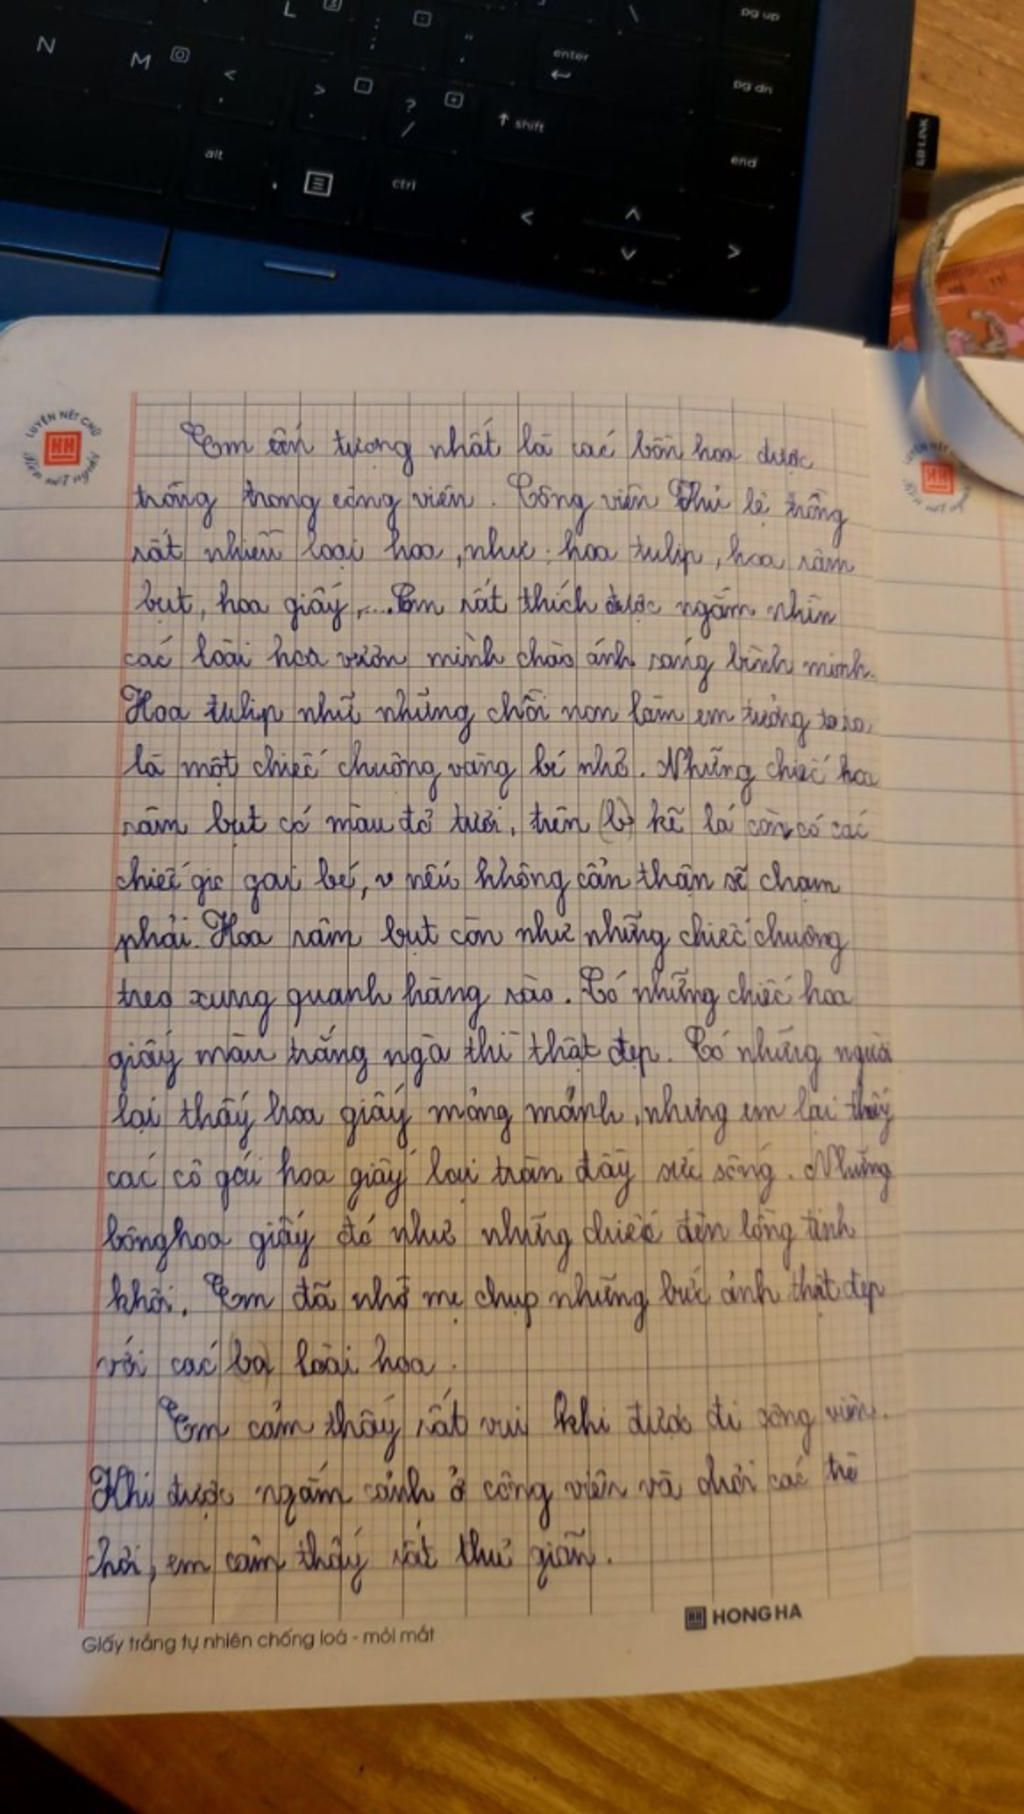 L
pg up
N
M
enter
pg dn
<
>
?
.
/
↑ shift
end
alt
ctrl
<
^
v
>
LUYỆN NÉT CHỮ
HH
Em ấn tượng nhất là các bồn hoa được
trồng trong công viên. Công viên Thủ lệ trồng
rất nhiều loại hoa, như: hoa tulip, hoa râm
bụt, hoa giấy,.... Em rất thích được ngắm nhìn
các loài hoa vươn mình chào ánh sáng bình minh.
Hoa tulip như những chồi non làm em tưởng
là một chiếc chuông vàng bé nhỏ. Những chiếc hoa
râm bụt có màu đỏ tươi, trên kẽ lá còn có các
chiếc gai bé, nếu không cẩn thận sẽ chạm
phải. Hoa râm bụt còn như những chiếc chuông
treo xung quanh hàng rào. Có những chiếc hoa
giấy màu trắng ngà thì thật đẹp. Có những người
lại thấy hoa giấy mỏng mảnh, nhưng em lại thấy
các cô gái hoa giấy lại tràn đầy sức sống. Những
bông hoa giấy đó như những chiếc đèn lồng tinh
khôi. Em đã nhờ mẹ chụp những bức ảnh thật đẹp
với các loài hoa.
Em cảm thấy rất vui khi được đi công viên.
Khi được ngắm cảnh ở công viên và chơi các trò
chơi, em cảm thấy rất thư giãn.
HH HONG HA
Giấy trắng tự nhiên chống loá - mỏi mắt